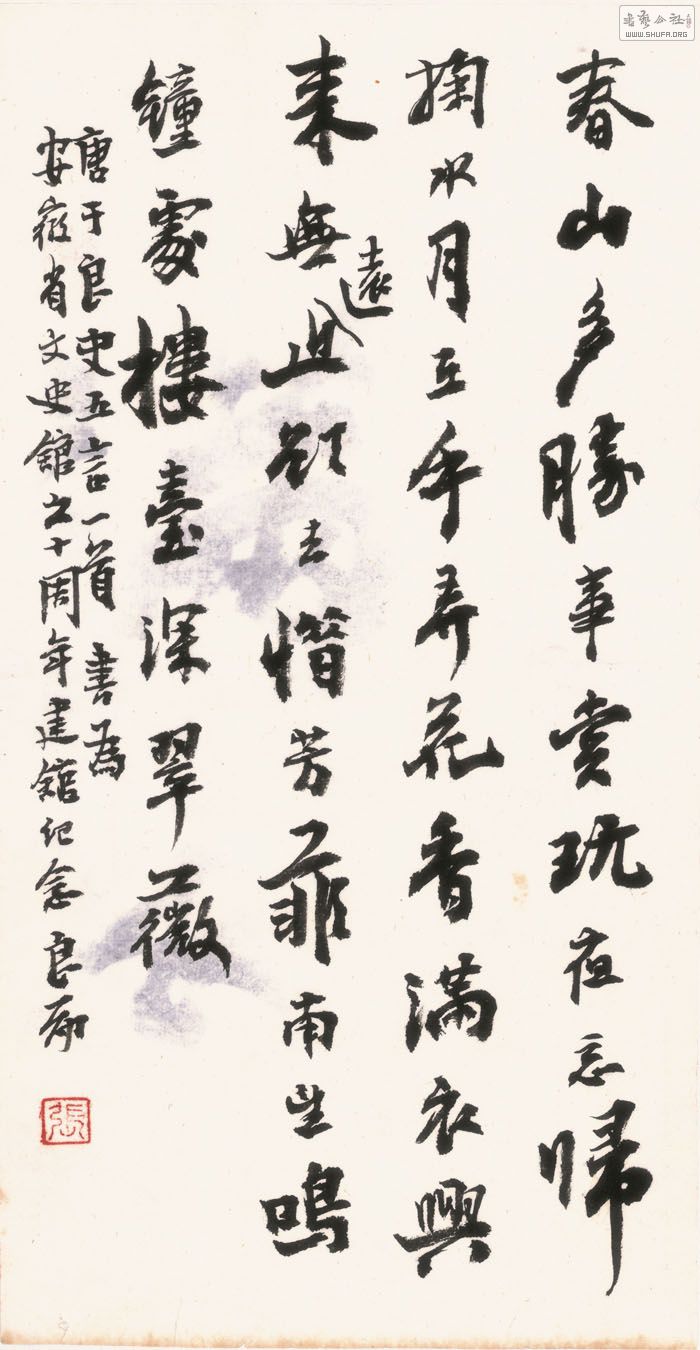 春山多勝事賞玩夜忘歸
掬水月在手弄花香滿衣興
來無遠近欲去惜芳菲南望鳴
鐘處樓臺深翠微
唐于良史五言一首書為
安徽省文史館五十周年建館紀念良勛
張
書藝公社
WWW.SHUFA.ORG